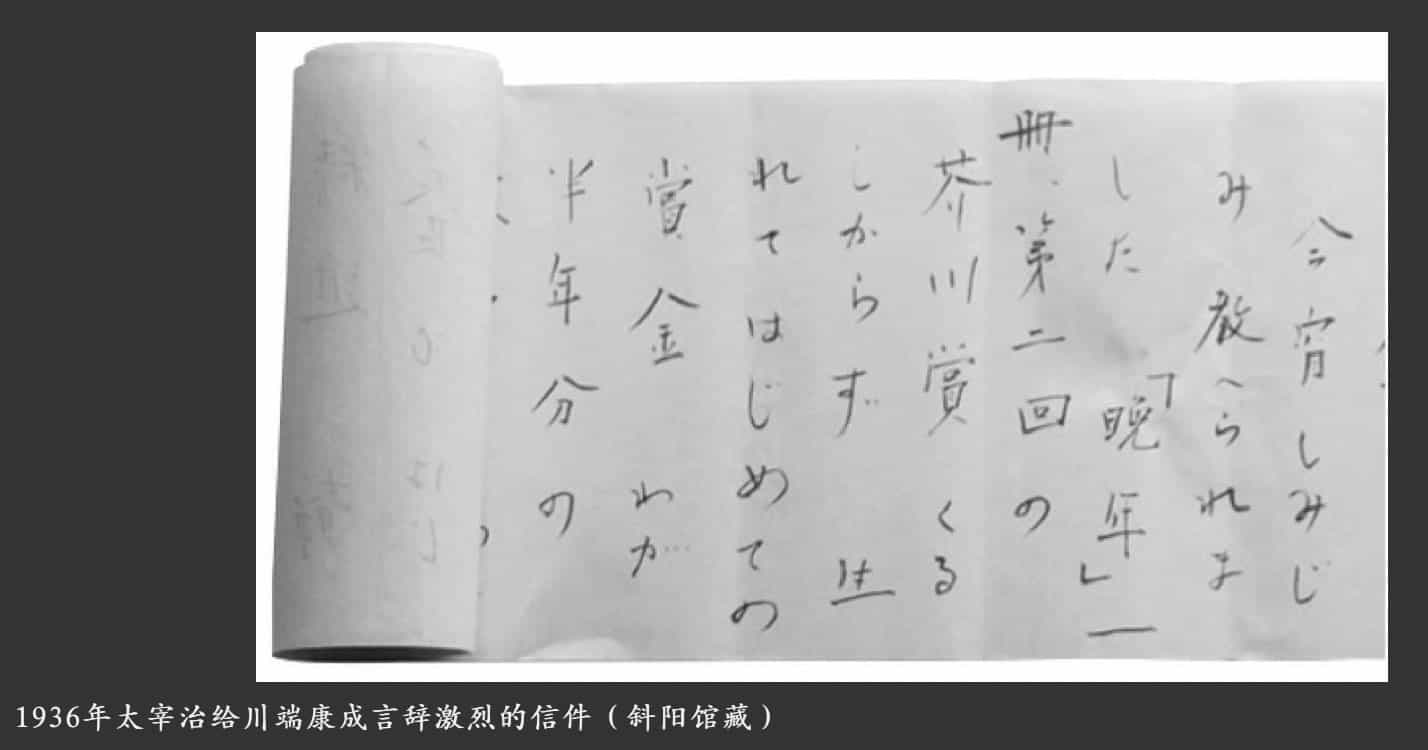 今宵しみじ
み教へられま
した「晩年」一
冊、第二回の
芥川賞くる
しからず生
れてはじめての
賞金わが
半年分の
1936年太宰治给川端康成言辞激烈的信件（斜阳馆藏）